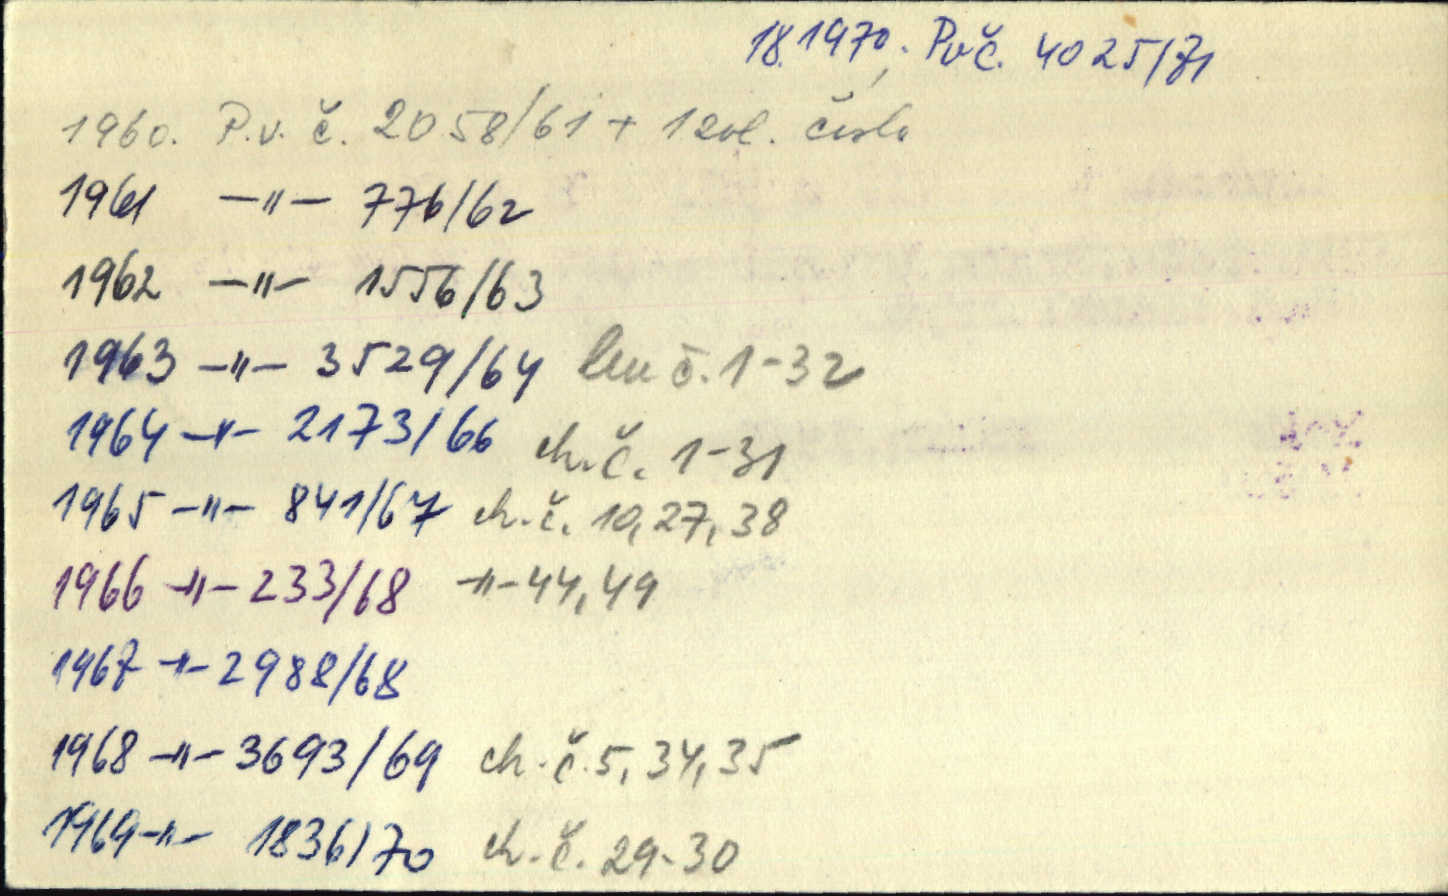 18.1970. Pvč. 4025/71
1960. P.v. č. 2058/61 + 1 zvl. číslo
1961 -"- 776/62
1962 -"- 1556/63
1963 -"- 3529/64 len č. 1-32
1964 -"- 2173/66 ch.č. 1-31
1965 -"- 841/67 ch.č. 10,27,38
1966 -"- 233/68 -"- 44,49
1967 -"- 2988/68
1968 -"- 3693/69 ch.č. 5,34,35
1969 -"- 1836/70 ch.č. 29-30